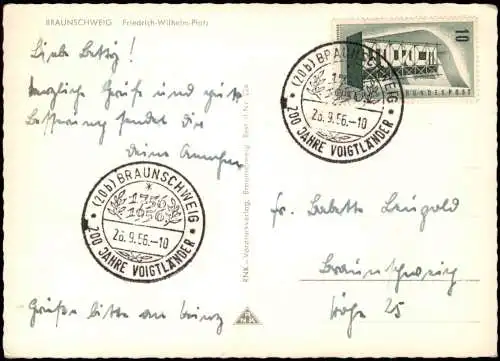 BRAUNSCHWEIG Friedrich-Wilhelm-Platz
Liebe Betty!
herzliche Grüße und gute
Besserung sendet dir
Deine
Grüße bitte an
(20b) BRAUNSCHWEIG
1756
1956
26.9.56.-10
200 JAHRE VOIGTLÄNDER
RNK-Vereinsverlag, Braunschweig
10
EUROPA
DEUTSCHE BUNDESPOST
(20b) BRAUNSCHWEIG
1756
1956
26.9.56.-10
200 JAHRE VOIGTLÄNDER
Fr. Babette
Braunschweig
25